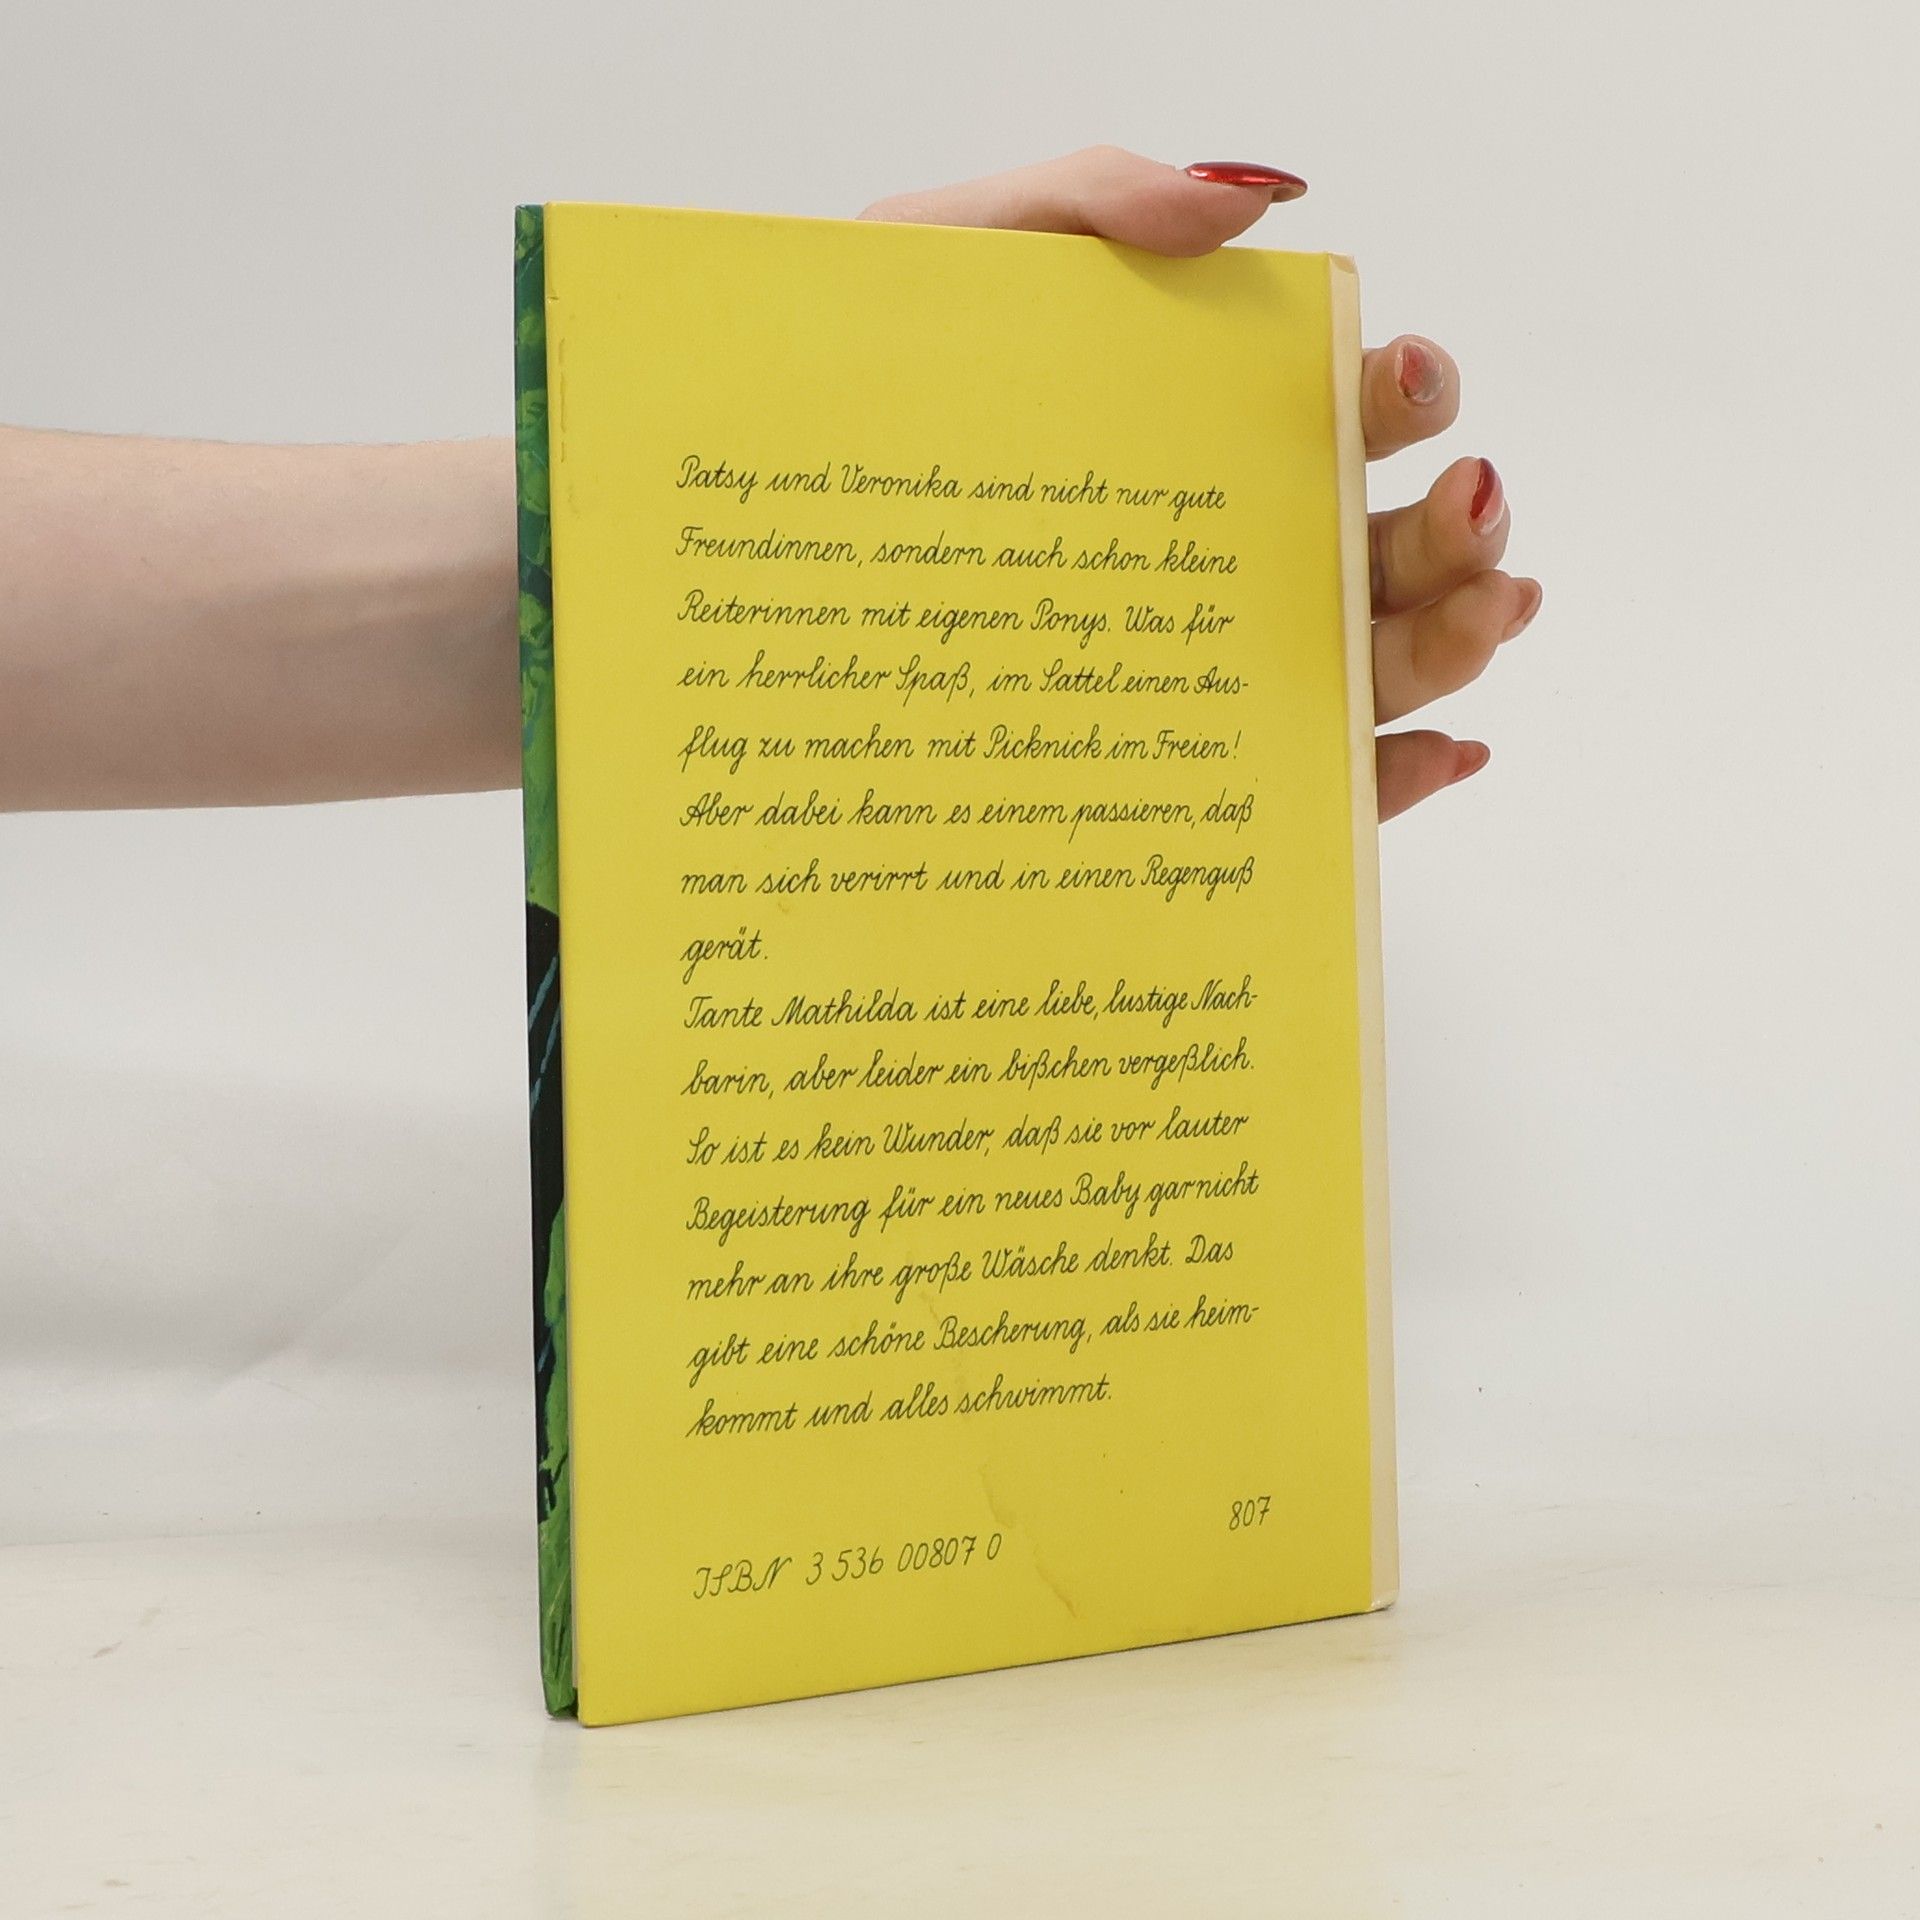 Patsy und Veronika sind nicht nur gute
Freundinnen, sondern auch schon kleine
Reiterinnen mit eigenen Ponys. Was für
ein herrlicher Spaß, im Sattel einen Aus-
flug zu machen mit Picknick im Freien!
Aber dabei kann es einem passieren, daß
man sich verirrt und in einen Regenguß
gerät.
Tante Mathilda ist eine liebe, lustige Nach-
barin, aber leider ein bißchen vergeßlich.
So ist es kein Wunder, daß sie vor lauter
Begeisterung für ein neues Baby gar nicht
mehr an ihre große Wäsche denkt. Das
gibt eine schöne Bescherung, als sie heim-
kommt und alles schwimmt.
807
ISBN 3 536 00807 0